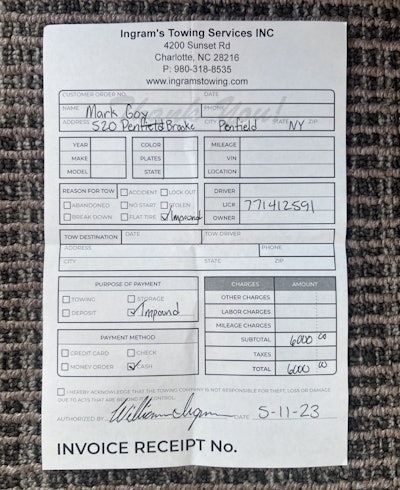 Ingram's Towing Services INC
4200 Sunset Rd
Charlotte, NC 28216
P: 980-318-8535
www.ingramstowing.com
CUSTOMER ORDER NO. DATE
NAME Mark Goy PHONE
ADDRESS 520 Penfield Brooke CITY Penfield STATE NY ZIP
YEAR COLOR MILEAGE
MAKE PLATES VIN
MODEL STATE LOCATION
REASON FOR TOW ACCIDENT LOCK OUT DRIVER
ABANDONED NO START STOLEN LIC# 771412591
BREAK DOWN FLAT TIRE Impound OWNER
TOW DESTINATION DATE TOW DRIVER
ADDRESS PHONE
CITY STATE ZIP
PURPOSE OF PAYMENT CHARGES AMOUNT
TOWING STORAGE OTHER CHARGES
DEPOSIT Impound LABOR CHARGES
MILEAGE CHARGES
PAYMENT METHOD SUBTOTAL 6000 00
CREDIT CARD CHECK TAXES
MONEY ORDER CASH TOTAL 6000 00
I HEREBY ACKNOWLEDGE THAT THE TOWING COMPANY IS NOT RESPONSIBLE FOR THEFT, LOSS OR DAMAGE
DUE TO ACTS THAT ARE BEYOND ITS CONTROL.
AUTHORIZED BY William Ingram DATE 5-11-23
INVOICE RECEIPT No.